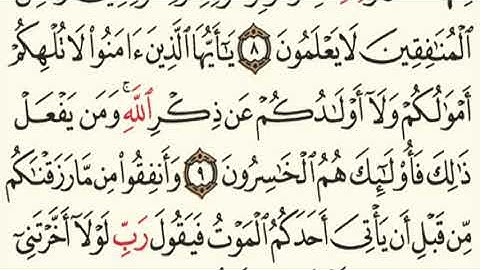 ٱلۡمُنَٰفِقِينَ لَا يَعۡلَمُونَ ٨ يَٰٓأَيُّهَا ٱلَّذِينَ ءَامَنُواْ لَا تُلۡهِكُمۡ
أَمۡوَٰلُكُمۡ وَلَآ أَوۡلَٰدُكُمۡ عَن ذِكۡرِ ٱللَّهِۚ وَمَن يَفۡعَلۡ
ذَٰلِكَ فَأُوْلَٰٓئِكَ هُمُ ٱلۡخَٰسِرُونَ ٩ وَأَنفِقُواْ مِن مَّا رَزَقۡنَٰكُم
مِّن قَبۡلِ أَن يَأۡتِيَ أَحَدَكُمُ ٱلۡمَوۡتُ فَيَقُولَ رَبِّ لَوۡلَآ أَخَّرۡتَنِيٓ